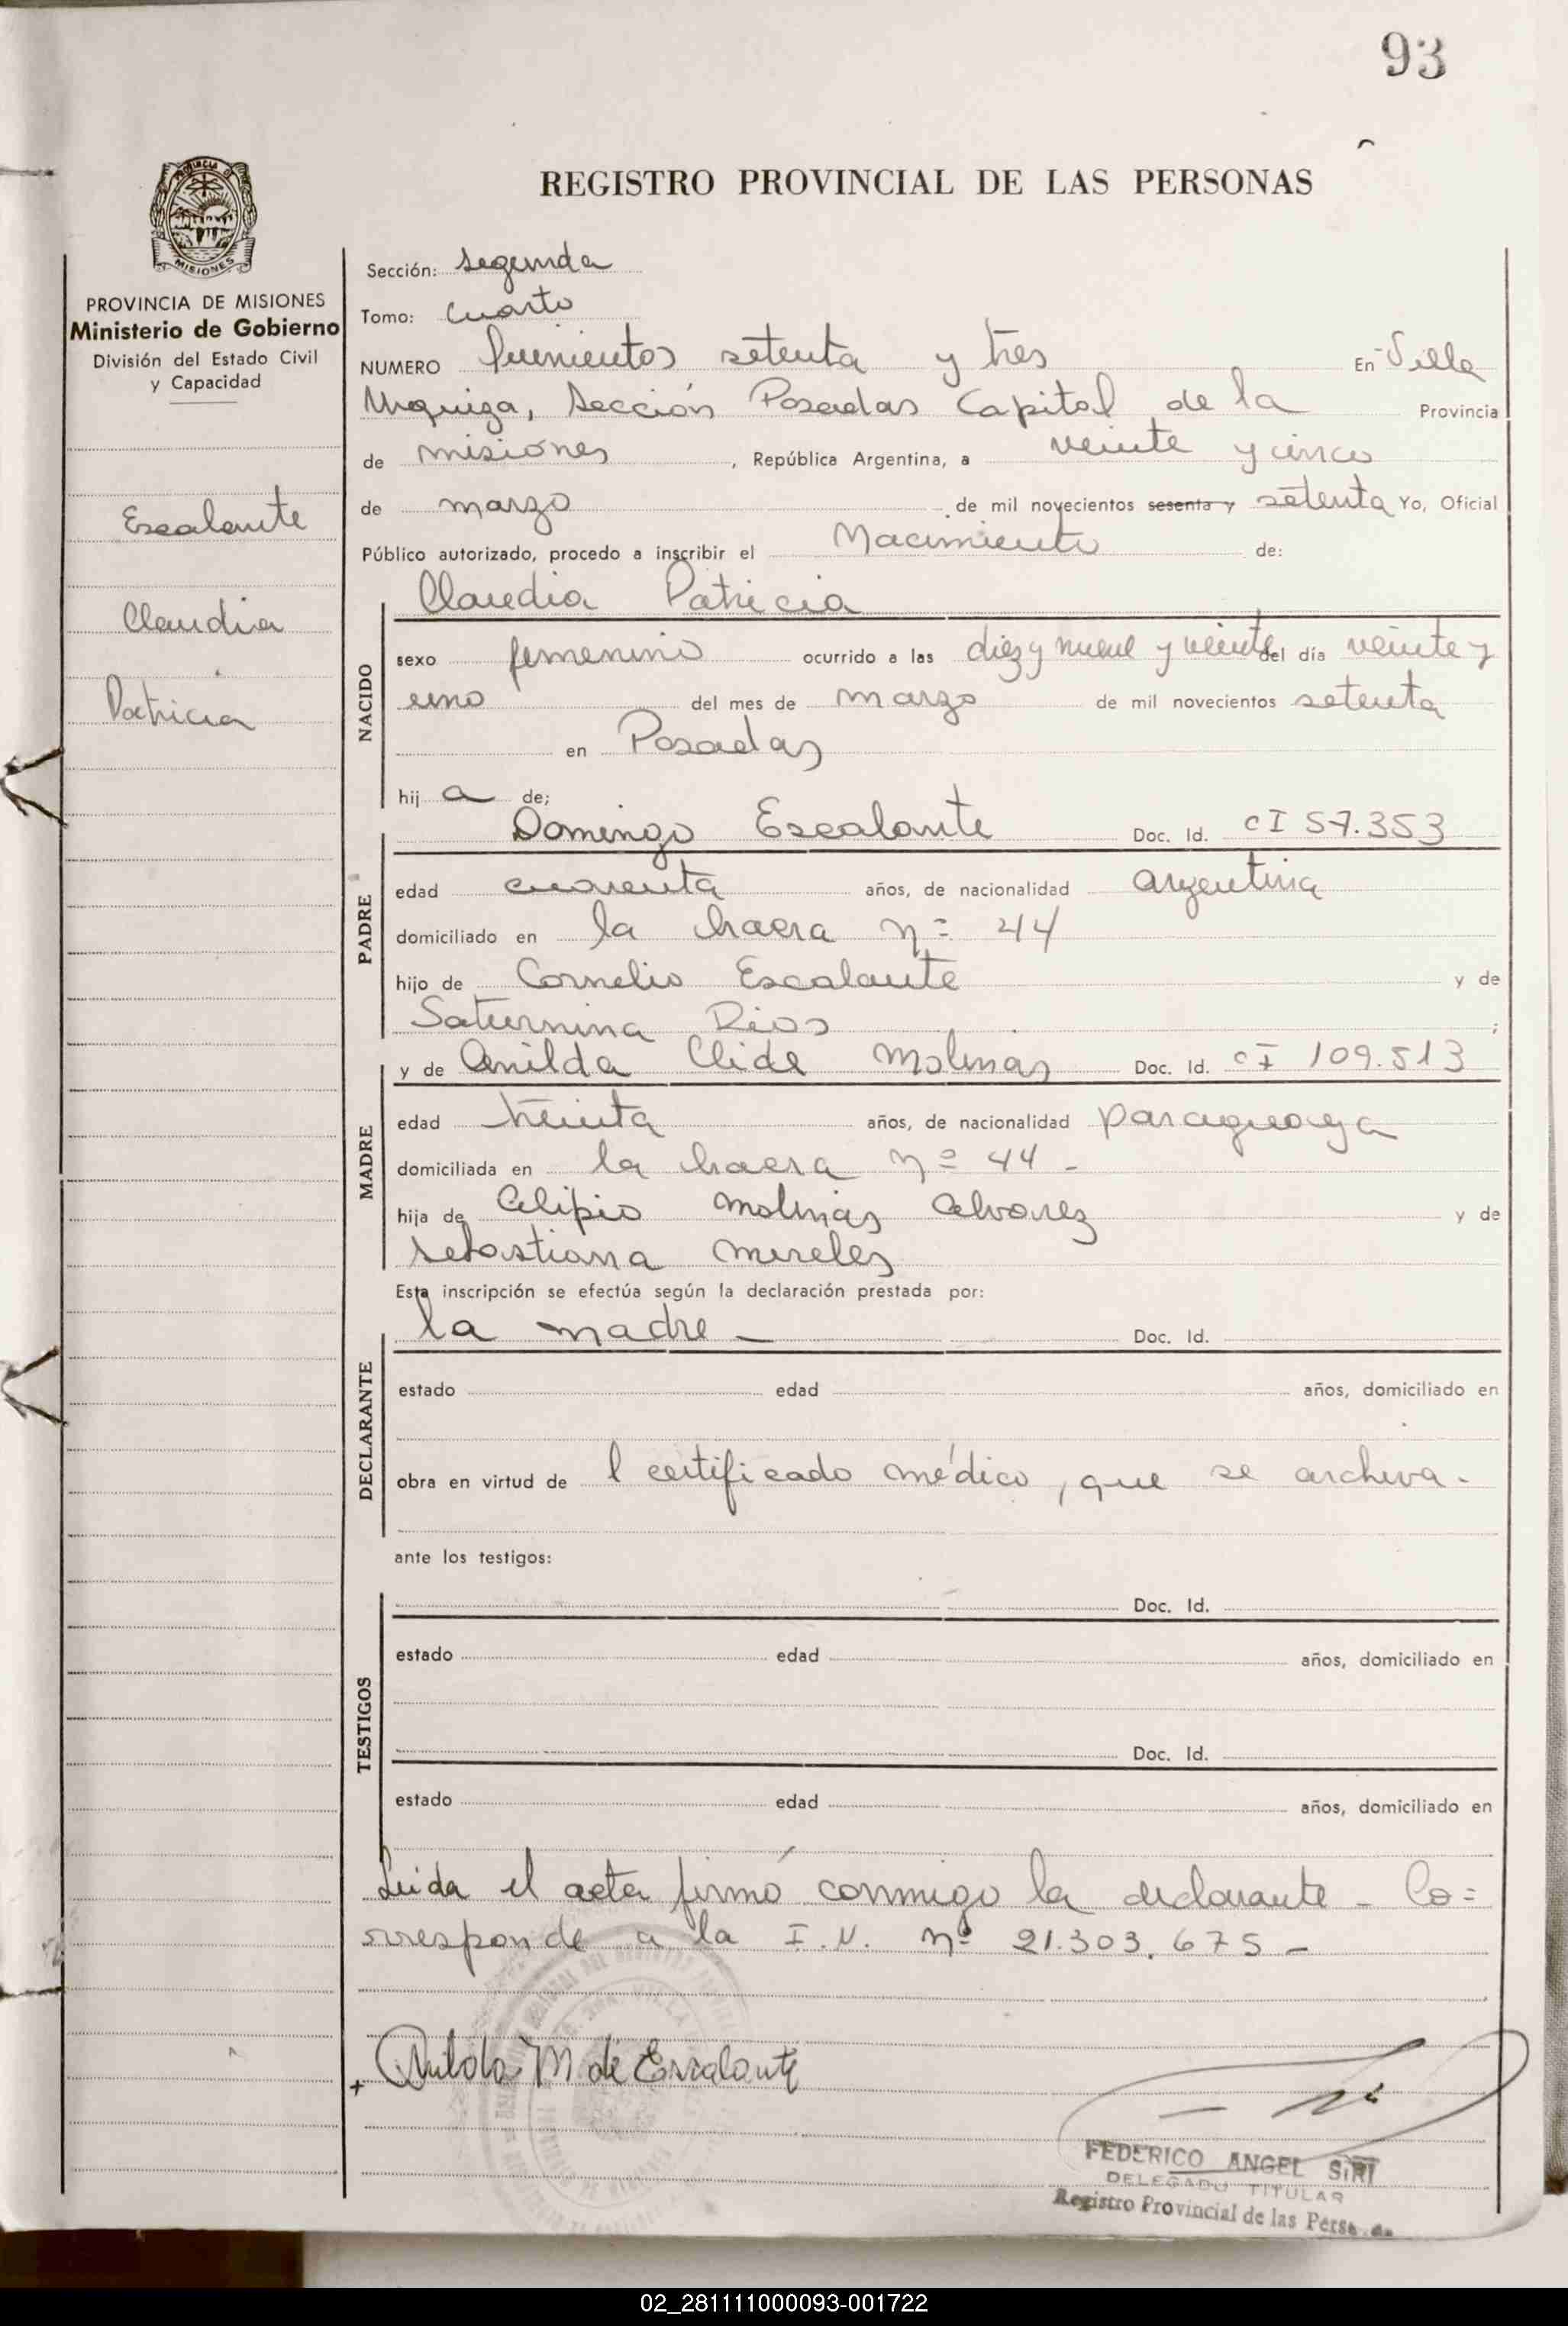 93
REGISTRO PROVINCIAL DE LAS PERSONAS
PROVINCIA DE MISIONES
Ministerio de Gobierno
División del Estado Civil
y Capacidad
Escalante
Claudia
Patricia
Sección: segunda
Tomo: cuarto
NUMERO setenta y tres En Villa
Urquiza, Sección Posadas Capital de la Provincia
de misiones, República Argentina, a veinte y cinco
de marzo de mil novecientos sesenta y setenta Yo, Oficial
Público autorizado, procedo a inscribir el Nacimiento de:
NACIDO
Claudia Patricia
sexo femenino ocurrido a las diez y nueve y veinte del día veinte y
uno del mes de marzo de mil novecientos setenta
en Posadas
hij a de;
PADRE
Domingo Escalante Doc. Id. CI 57.353
edad cuarenta años, de nacionalidad argentina
domiciliado en la nº 44
hijo de Cornelio Escalante y de
Saturnina Rios ;
MADRE
y de Anilda Elide Molinas Doc. Id. CI 109.513
edad treinta años, de nacionalidad paraguaya
domiciliada en la nº 44 -
hija de Alipio Molinas Alvarez y de
Sebastiana Mereles
Esta inscripción se efectúa según la declaración prestada por:
DECLARANTE
la madre - Doc. Id.
estado edad años, domiciliado en
obra en virtud de l certificado médico, que se archiva.
ante los testigos:
TESTIGOS
Doc. Id.
estado edad años, domiciliado en
Doc. Id.
estado edad años, domiciliado en
Leida el acta firmó conmigo la declarante - Co=
rresponde a la I.N. nº 21.303.675 -
Anilda M de Escalante
FEDERICO ANGEL SIRI
DELEGADO TITULAR
Registro Provincial de las
02_281111000093-001722